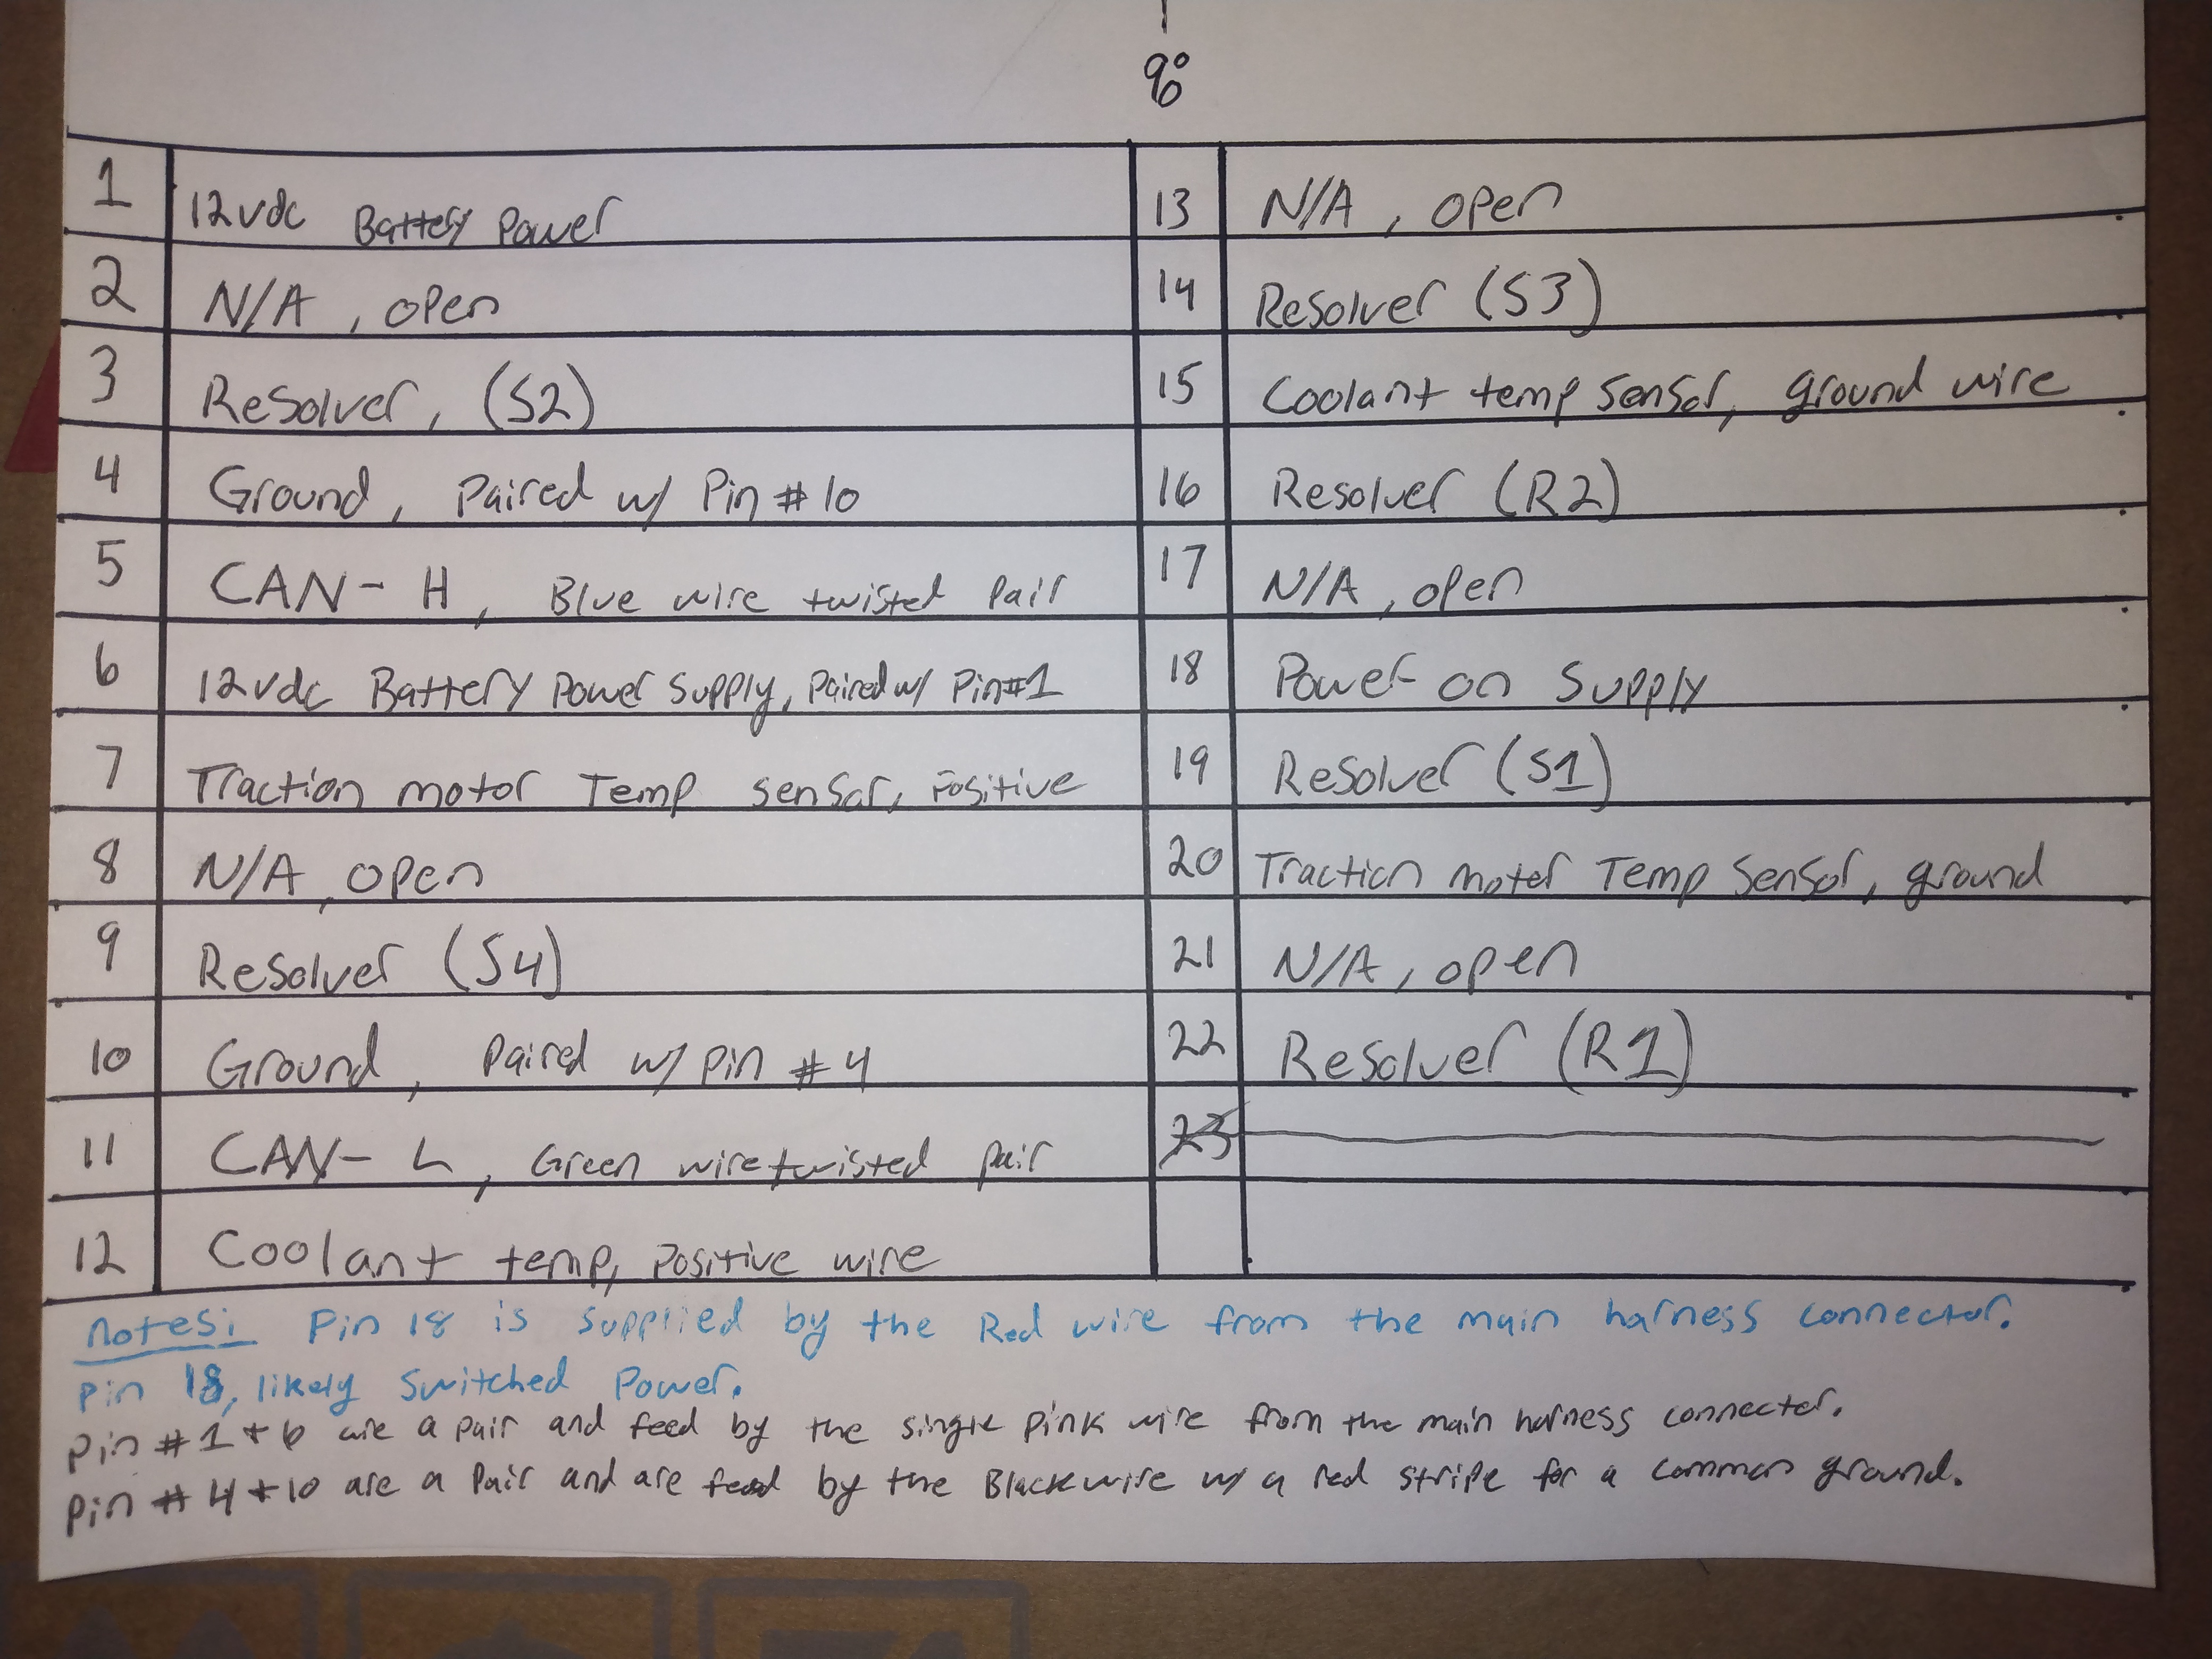 90
1 12vdc Battery Power
2 N/A, open
3 Resolver, (S2)
4 Ground, Paired w/ Pin #10
5 CAN-H, Blue wire twisted pair
6 12vdc Battery Power Supply, Paired w/ Pin#1
7 Traction motor Temp sensor, Positive
8 N/A, open
9 Resolver (S4)
10 Ground, Paired w/ pin #4
11 CAN-L, Green wire twisted pair
12 Coolant temp, positive wire
13 N/A, open
14 Resolver (S3)
15 Coolant temp sensor, ground wire
16 Resolver (R2)
17 N/A, open
18 Power on Supply
19 Resolver (S1)
20 Traction motor Temp Sensor, ground
21 N/A, open
22 Resolver (R1)
23
Notes: Pin 18 is supplied by the Red wire from the main harness connector.
Pin 18, likely Switched Power.
Pin #1 + 6 are a pair and feed by the single pink wire from the main harness connecter.
Pin #4 + 10 are a Pair and are feed by the Black wire w/ a red stripe for a common ground.